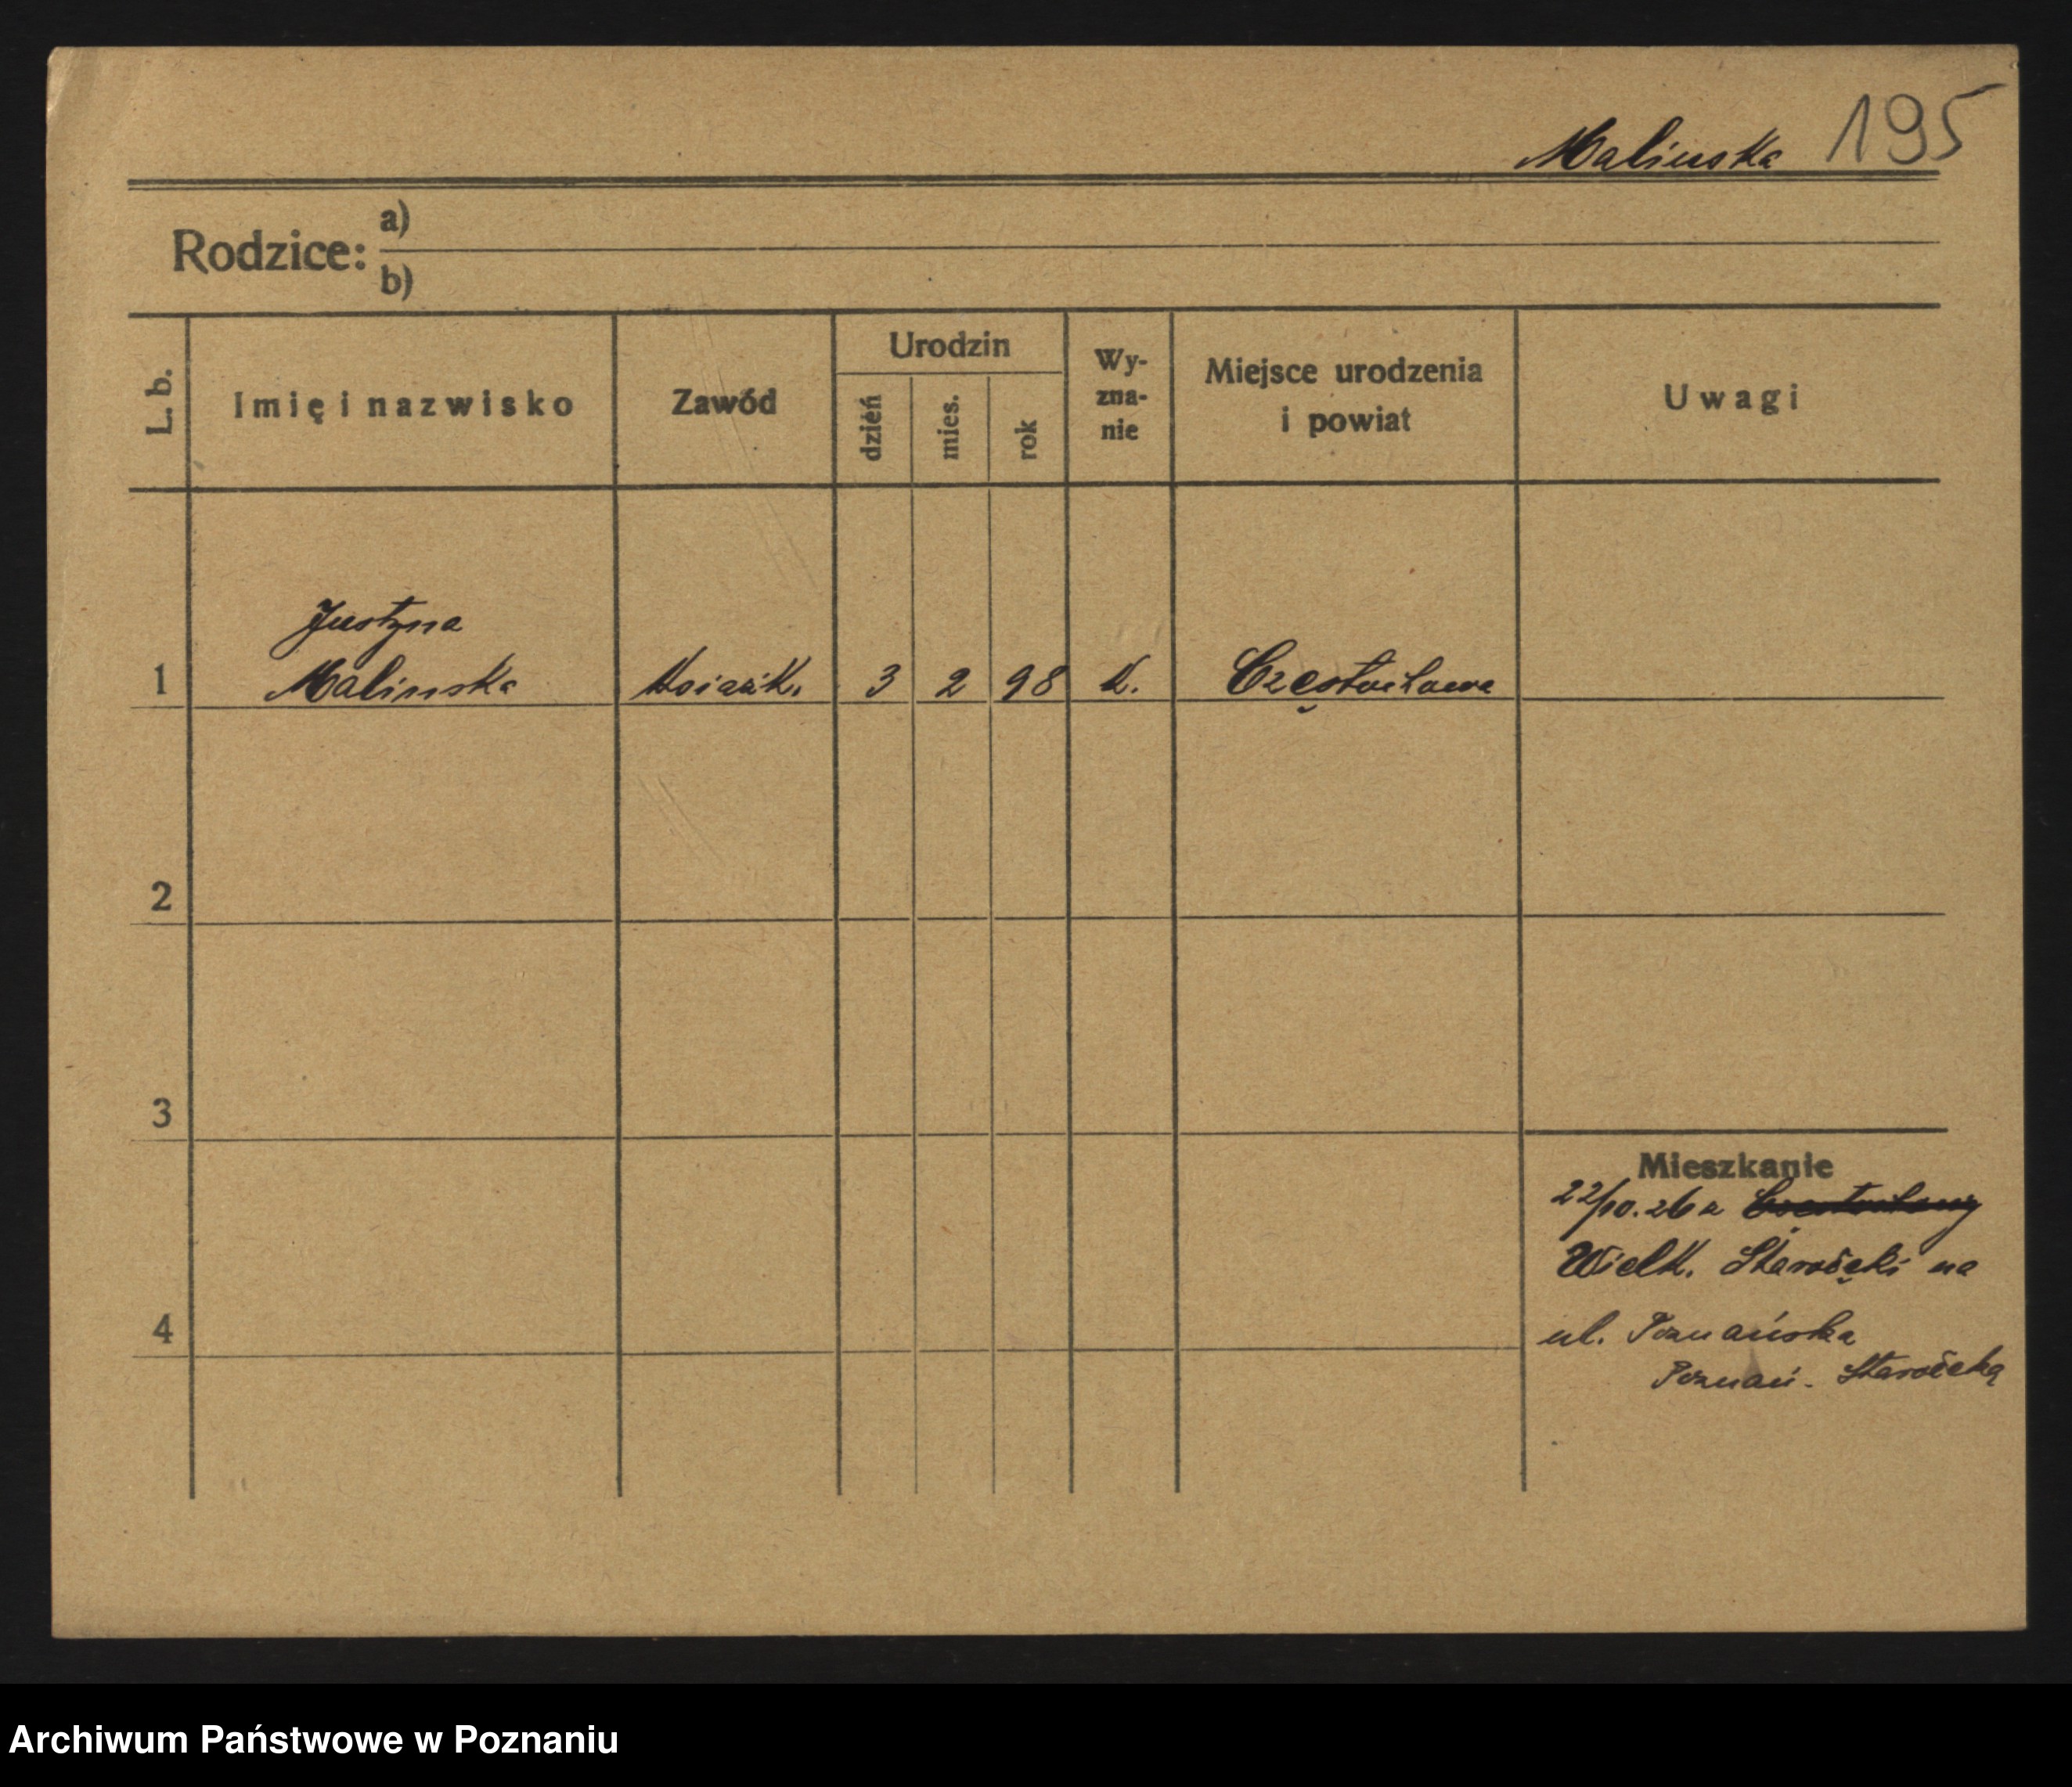 Malinska 195
Rodzice: a)
b)
L. b. Imię i nazwisko Zawód Urodzin dzień mies. rok Wy-zna-nie Miejsce urodzenia i powiat Uwagi
Justyna
1 Malinska 3 2 98 K. Częstochowa
2
3
Mieszkanie
22/10.26 z
Wielk. Starołęki na
4 ul. Poznańska
Poznań - Starołęką
Archiwum Państwowe w Poznaniu